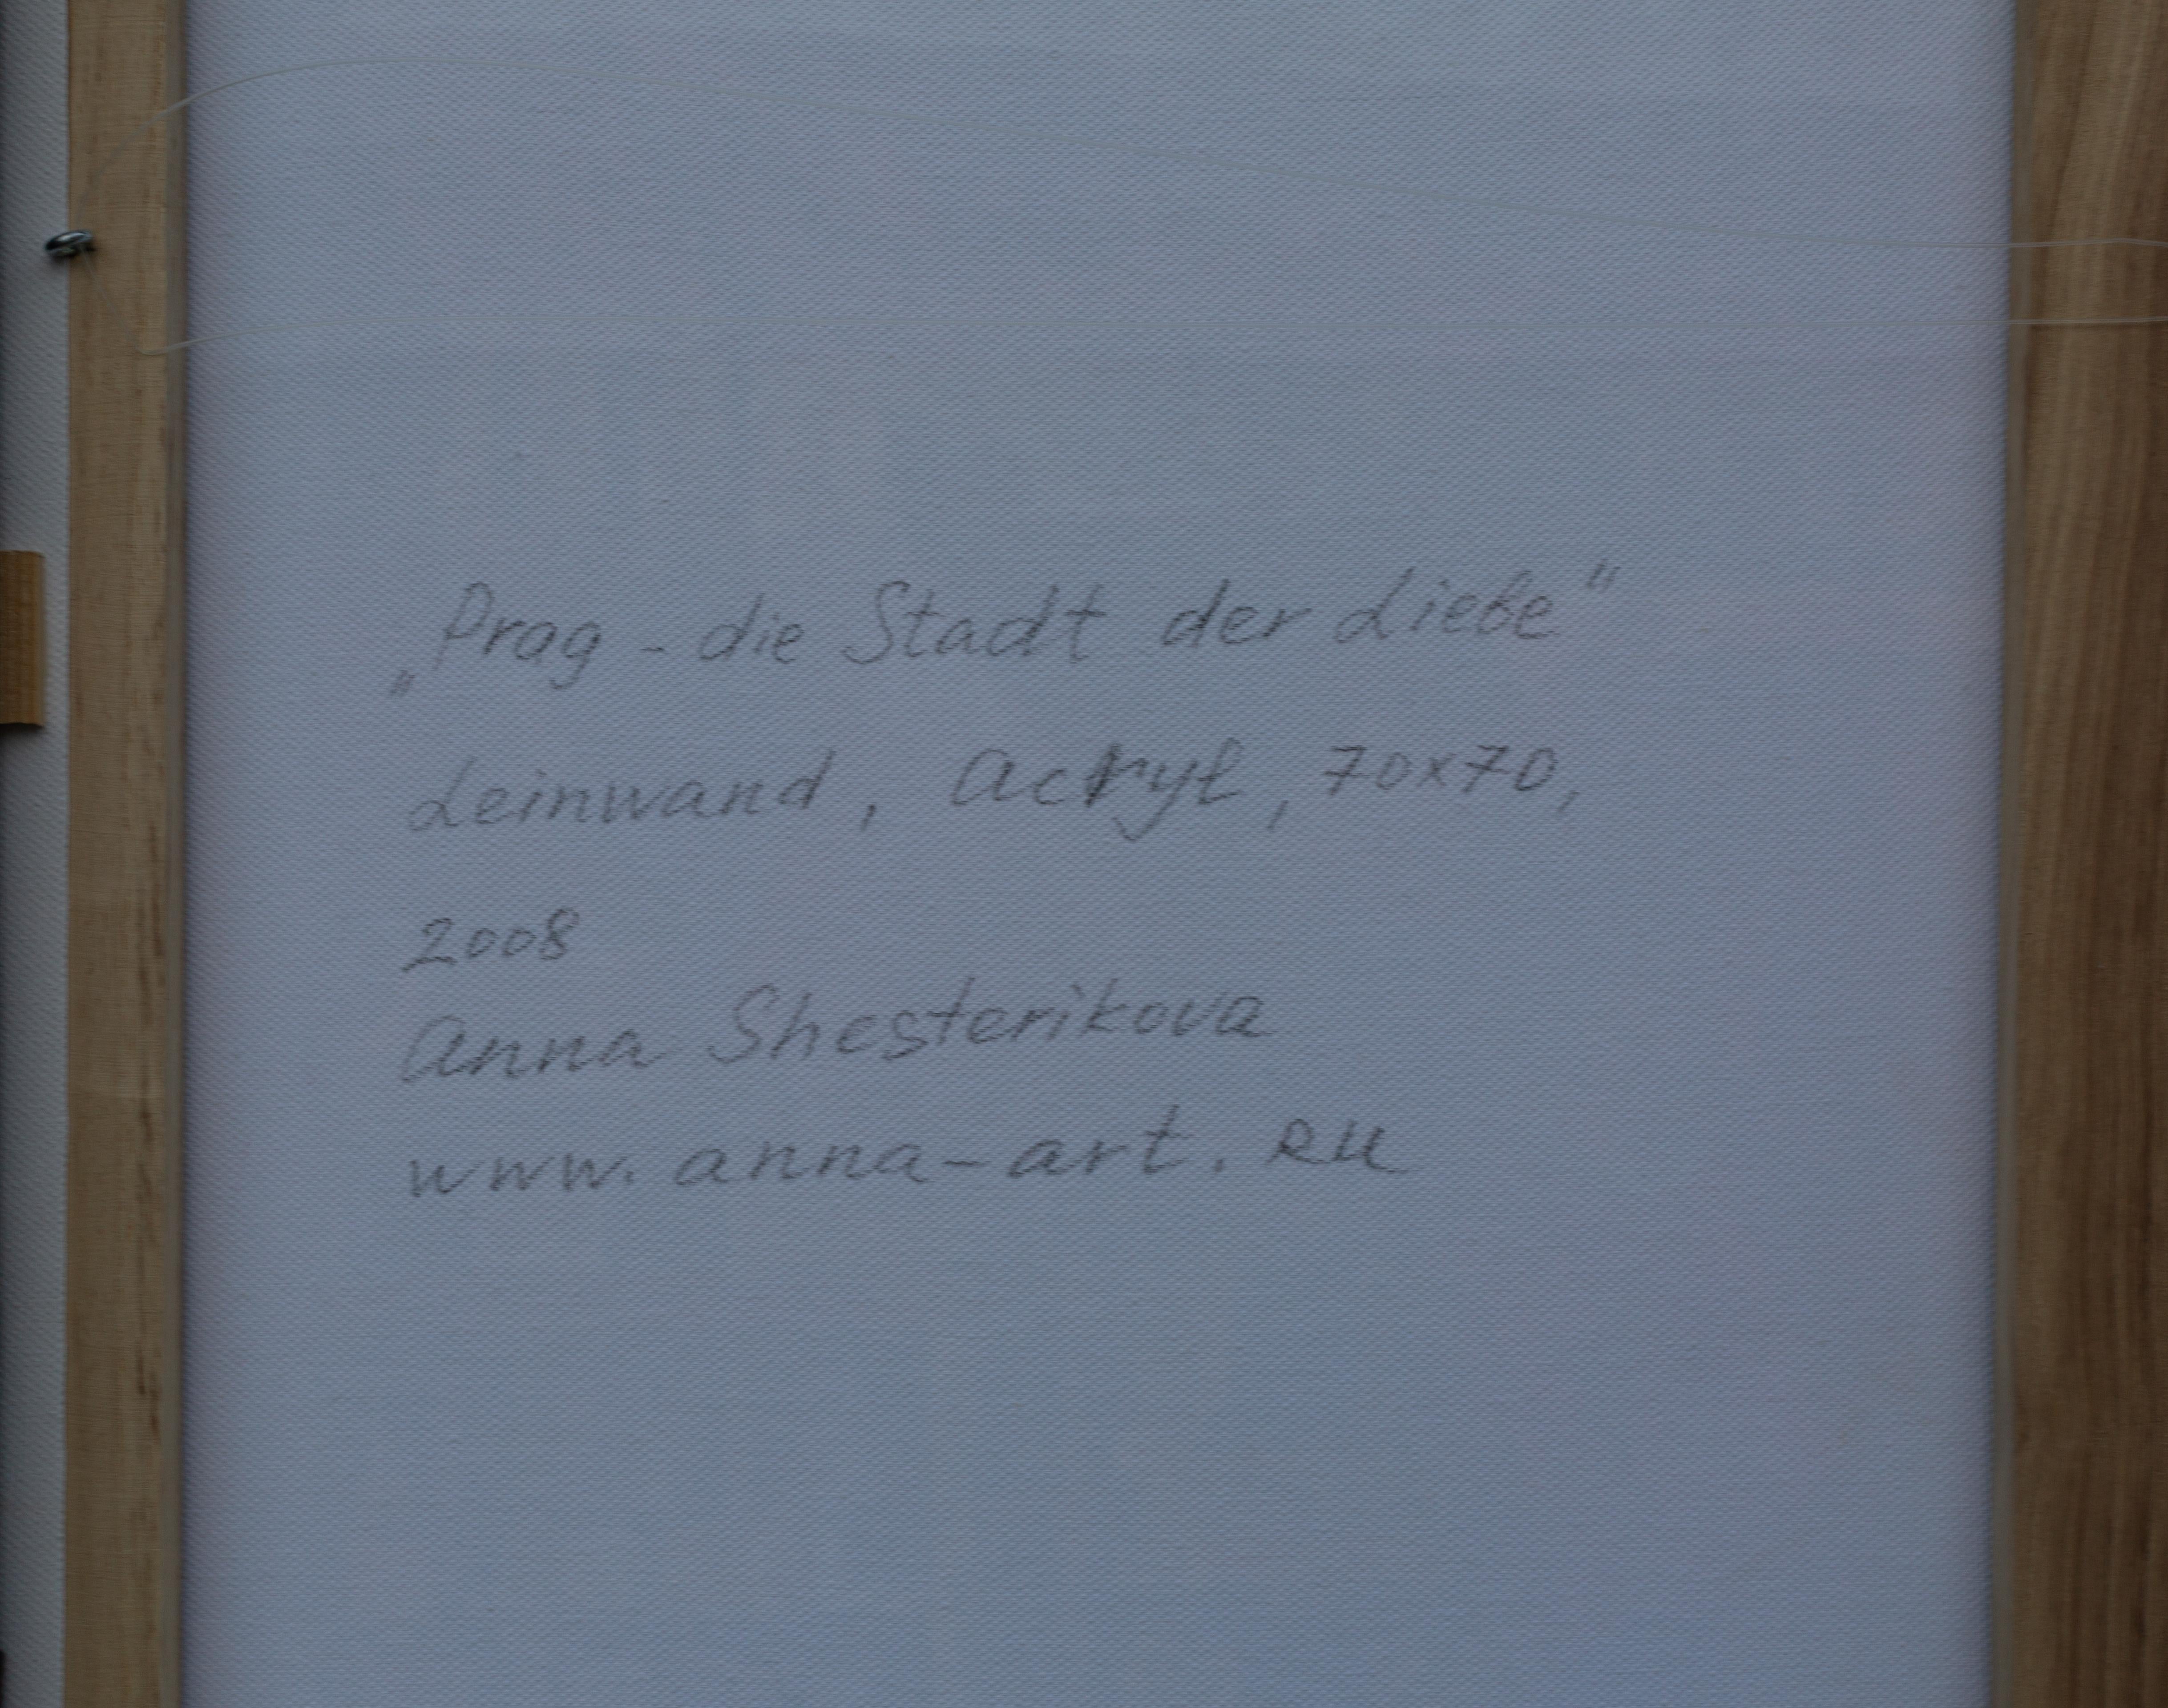 „Prag - die Stadt der Liebe“
Leinwand, Acryl, 70x70,
2008
Anna Shesterikova
www.anna-art.RU